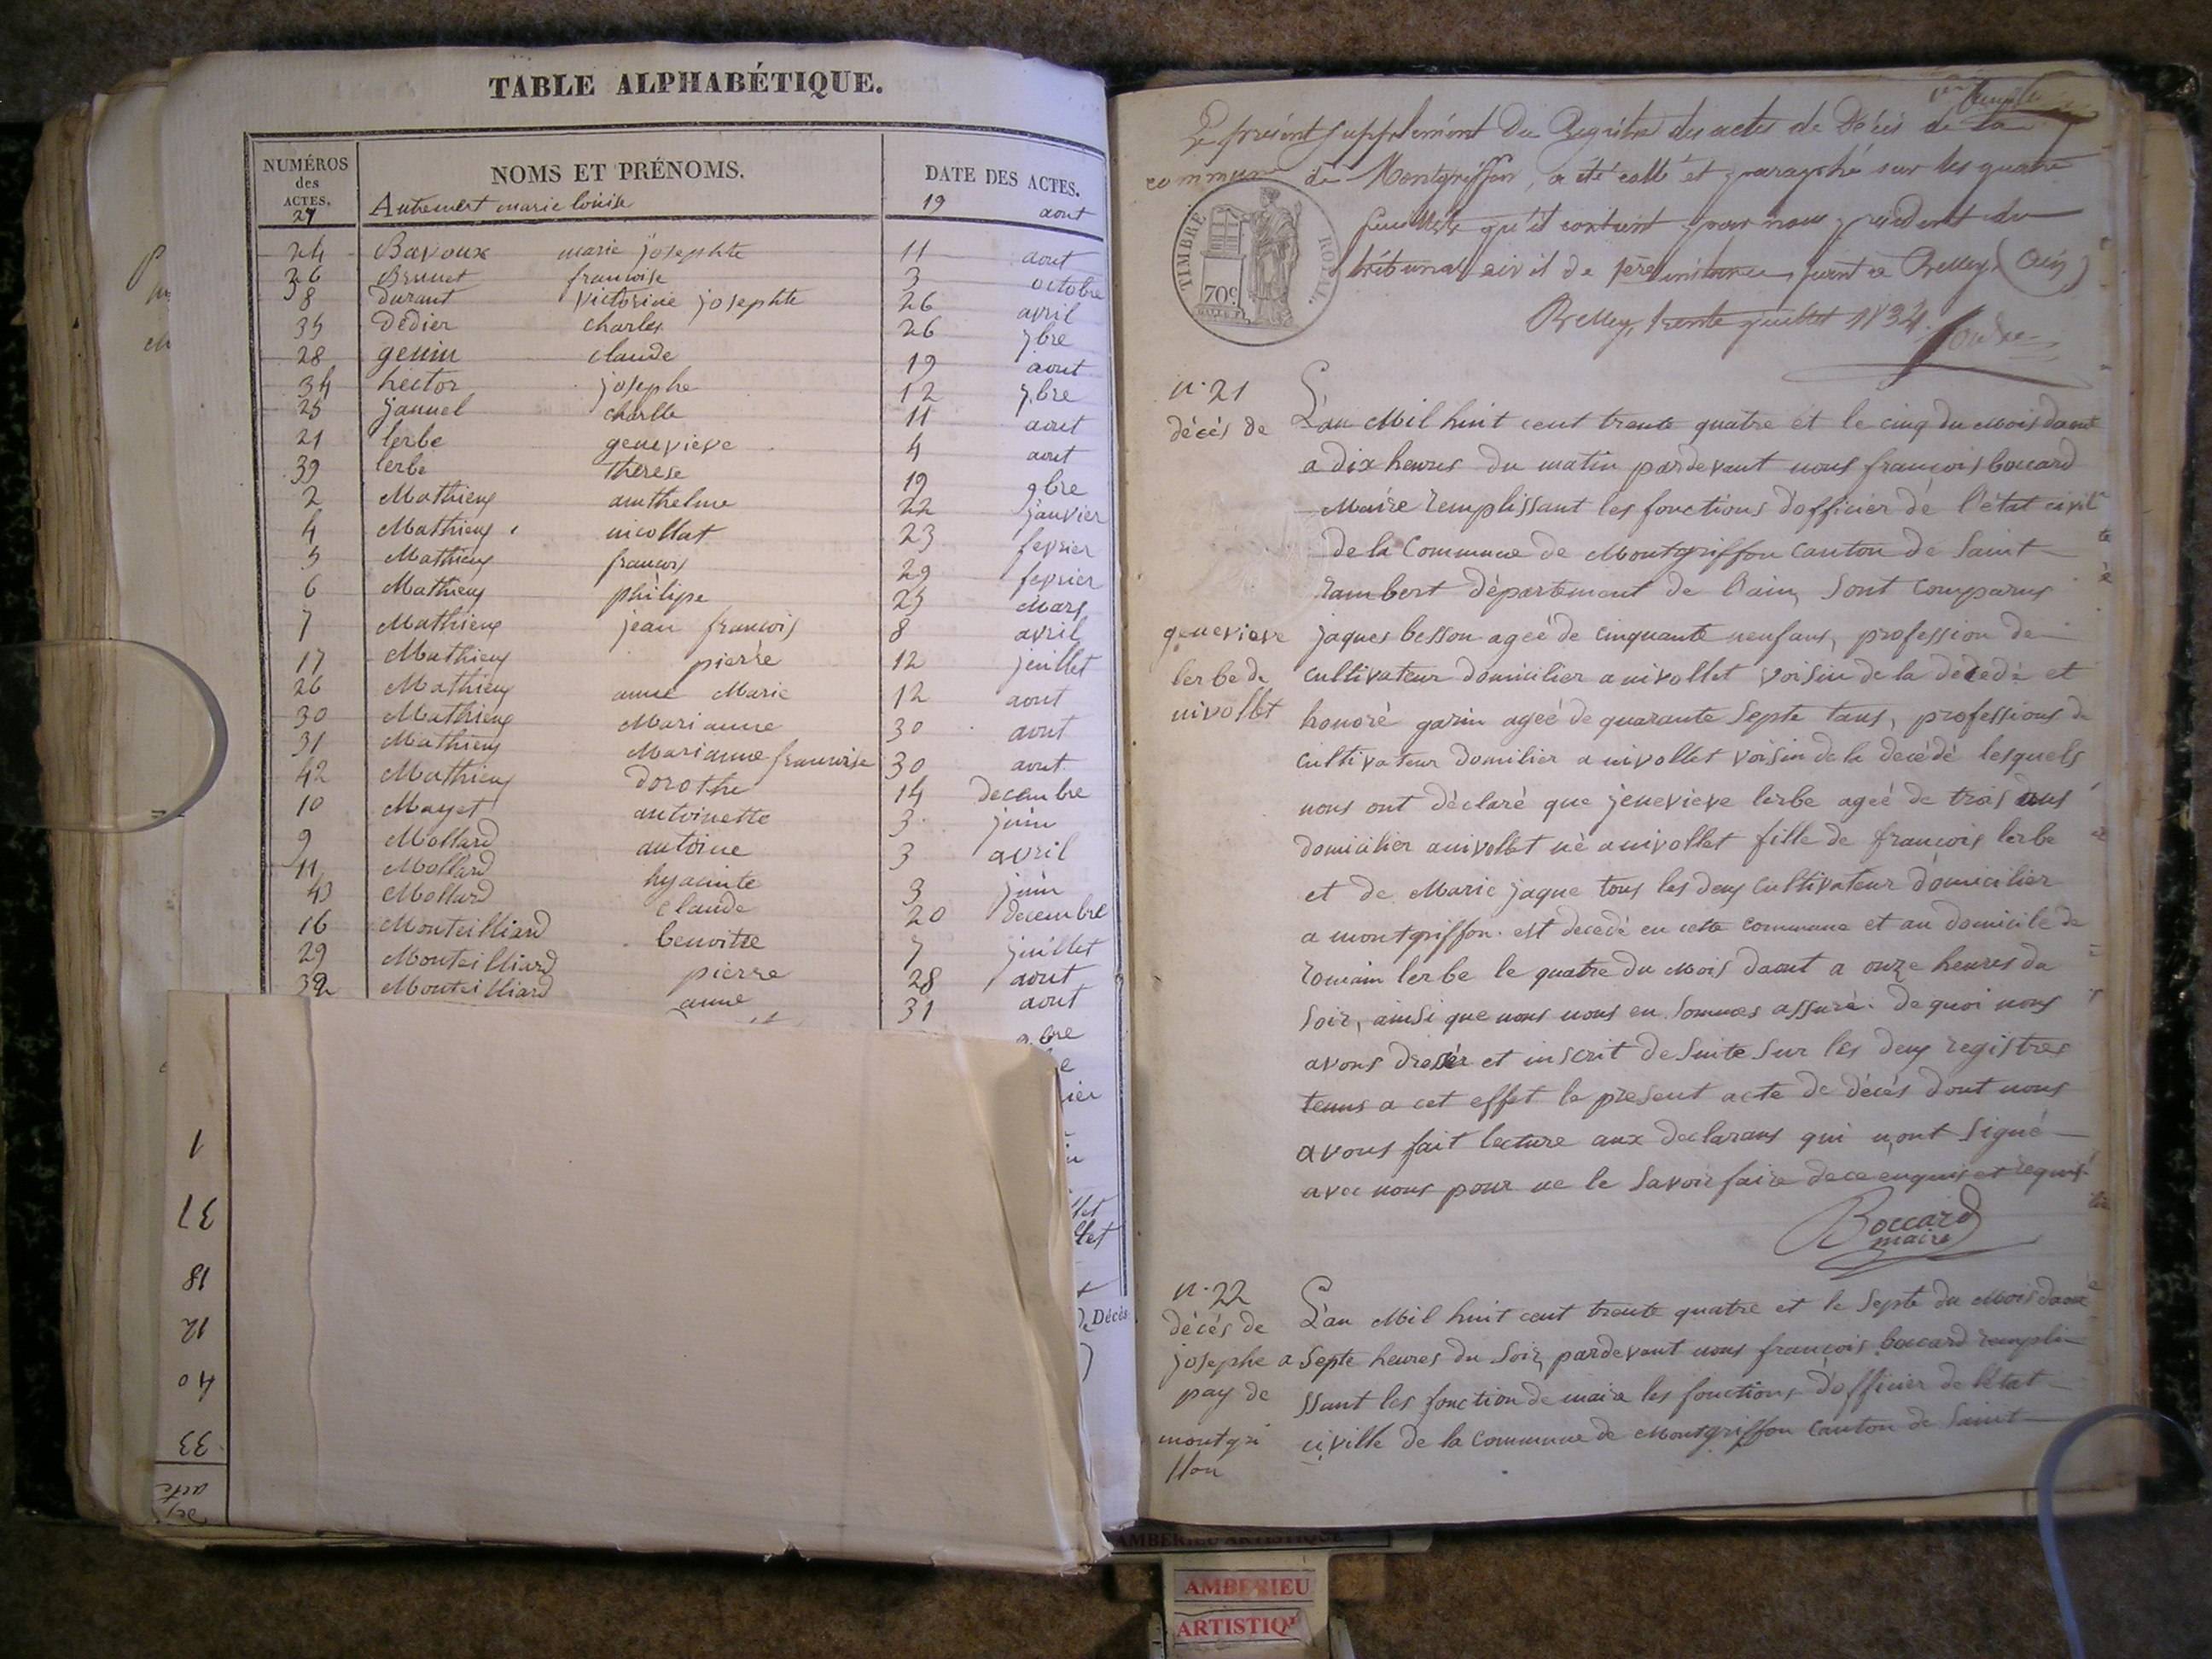 TABLE ALPHABÉTIQUE.
NUMÉROS des ACTES. NOMS ET PRÉNOMS. DATE DES ACTES.
27 Autremert marie louise 19 aout
24 Bavoux marie josephte 11 aout
36 Brunet francoise 3 octobre
8 durant victorine josephte 26 avril
35 dédier charles 26 7bre
28 genin claude 19 aout
34 hector josephe 12 7bre
25 jannel charlle 11 aout
21 lerbe genevieve 4 aout
39 lerbe therese 19 9bre
2 Mathieux anthelme 22 janvier
4 Mathieux nicollat 23 fevrier
5 Mathieux francois 29 fevrier
6 Mathieux philipe 25 Mars
7 Mathieux jean francois 8 avril
17 Mathieux pierre 12 juillet
26 Mathieux anne Marie 12 aout
30 Mathieux Marianne 30 aout
31 Mathieux Marianne francoise 30 aout
42 Mathieux dorothe 14 decembre
10 Mayet antoinette 3 juin
9 Mollard antoine 3 avril
11 Mollard hyacinte 3 juin
43 Mollard claude 20 decembre
16 Monteilliard benoitte 7 juillet
29 Monteilliard pierre 28 aout
32 Monteilliard anne 31 aout
9bre
let
Décès
1
37
18
12
40
33
acte
Le présent supplément du Registre des actes de Décès de la
commune de Montgriffon, a été collé et paraphé sur les quatre
feuillets qu'il contient par nous président du
tribunal civil de 1ère instance séant à Belley (Ain)
Belley, trente juillet 1834.
TIMBRE ROYAL.
70c
n. 21
décès de
genevieve
lerbe de
nivollet
L'an Mil huit cent trente quatre et le cinq du mois daout
a dix heures du matin pardevant nous françois boccard
Maire remplissant les fonctions dofficier de l'état civil
de la Commune de Montgriffon canton de Saint
rambert département de lain, Sont comparus
jaques besson ageé de cinquante neuf ans, profession de
cultivateur domicilier a nivollet voisin de la decedé et
honoré garin ageé de quarante Septe tans, professions de
cultivateur domilier a nivollet voisin de la decédé lesquels
nous ont déclaré que jenevieve lerbe ageé de trois ans
domicilier a nivollet né a nivollet fille de françois lerbe
et de Marie jaque tous les deux cultivateur domicilier
a montgriffon. est decedé en cette commune et au domicile de
romain lerbe le quatre du mois daout a onze heures du
Soir, ainsi que nous nous en Sommes assuré. de quoi nous
avons dresér et inscrit de Suite Sur les deux registres
tenus a cet effet le present acte de décès dont nous
avons fait lecture aux declarans qui n,ont Signé
avec nous pour ne le Savoir faire de ce enquis et requis.
Boccard
maire
n. 22
décès de
josephe
pay de
montgri
ffon
L'an Mil huit cent trente quatre et le Septe du Mois daout
a Septe heures du Soir, pardevant nous françois boccard rempli
ssant les fonction de maire les fonctions dofficier de létat
civille de la Commune de Montgriffon Canton de Saint
AMBERIEU ARTISTIQUE
AMBERIEU
ARTISTIQU